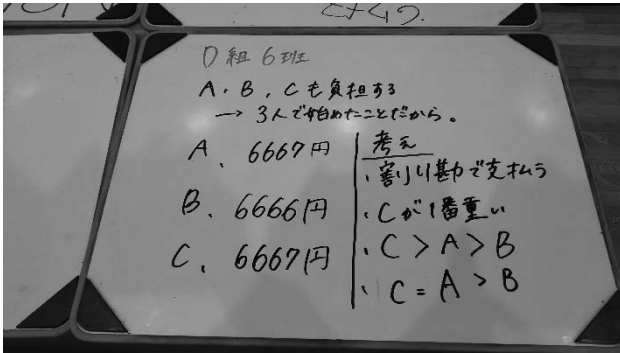 D組 6班
A、B、Cも負担する
→ 3人で始めたことだから。
A、6667円
B、6666円
C、6667円
考え
・割り勘で支払う
・Cが1番重い
・C > A > B
・C = A > B